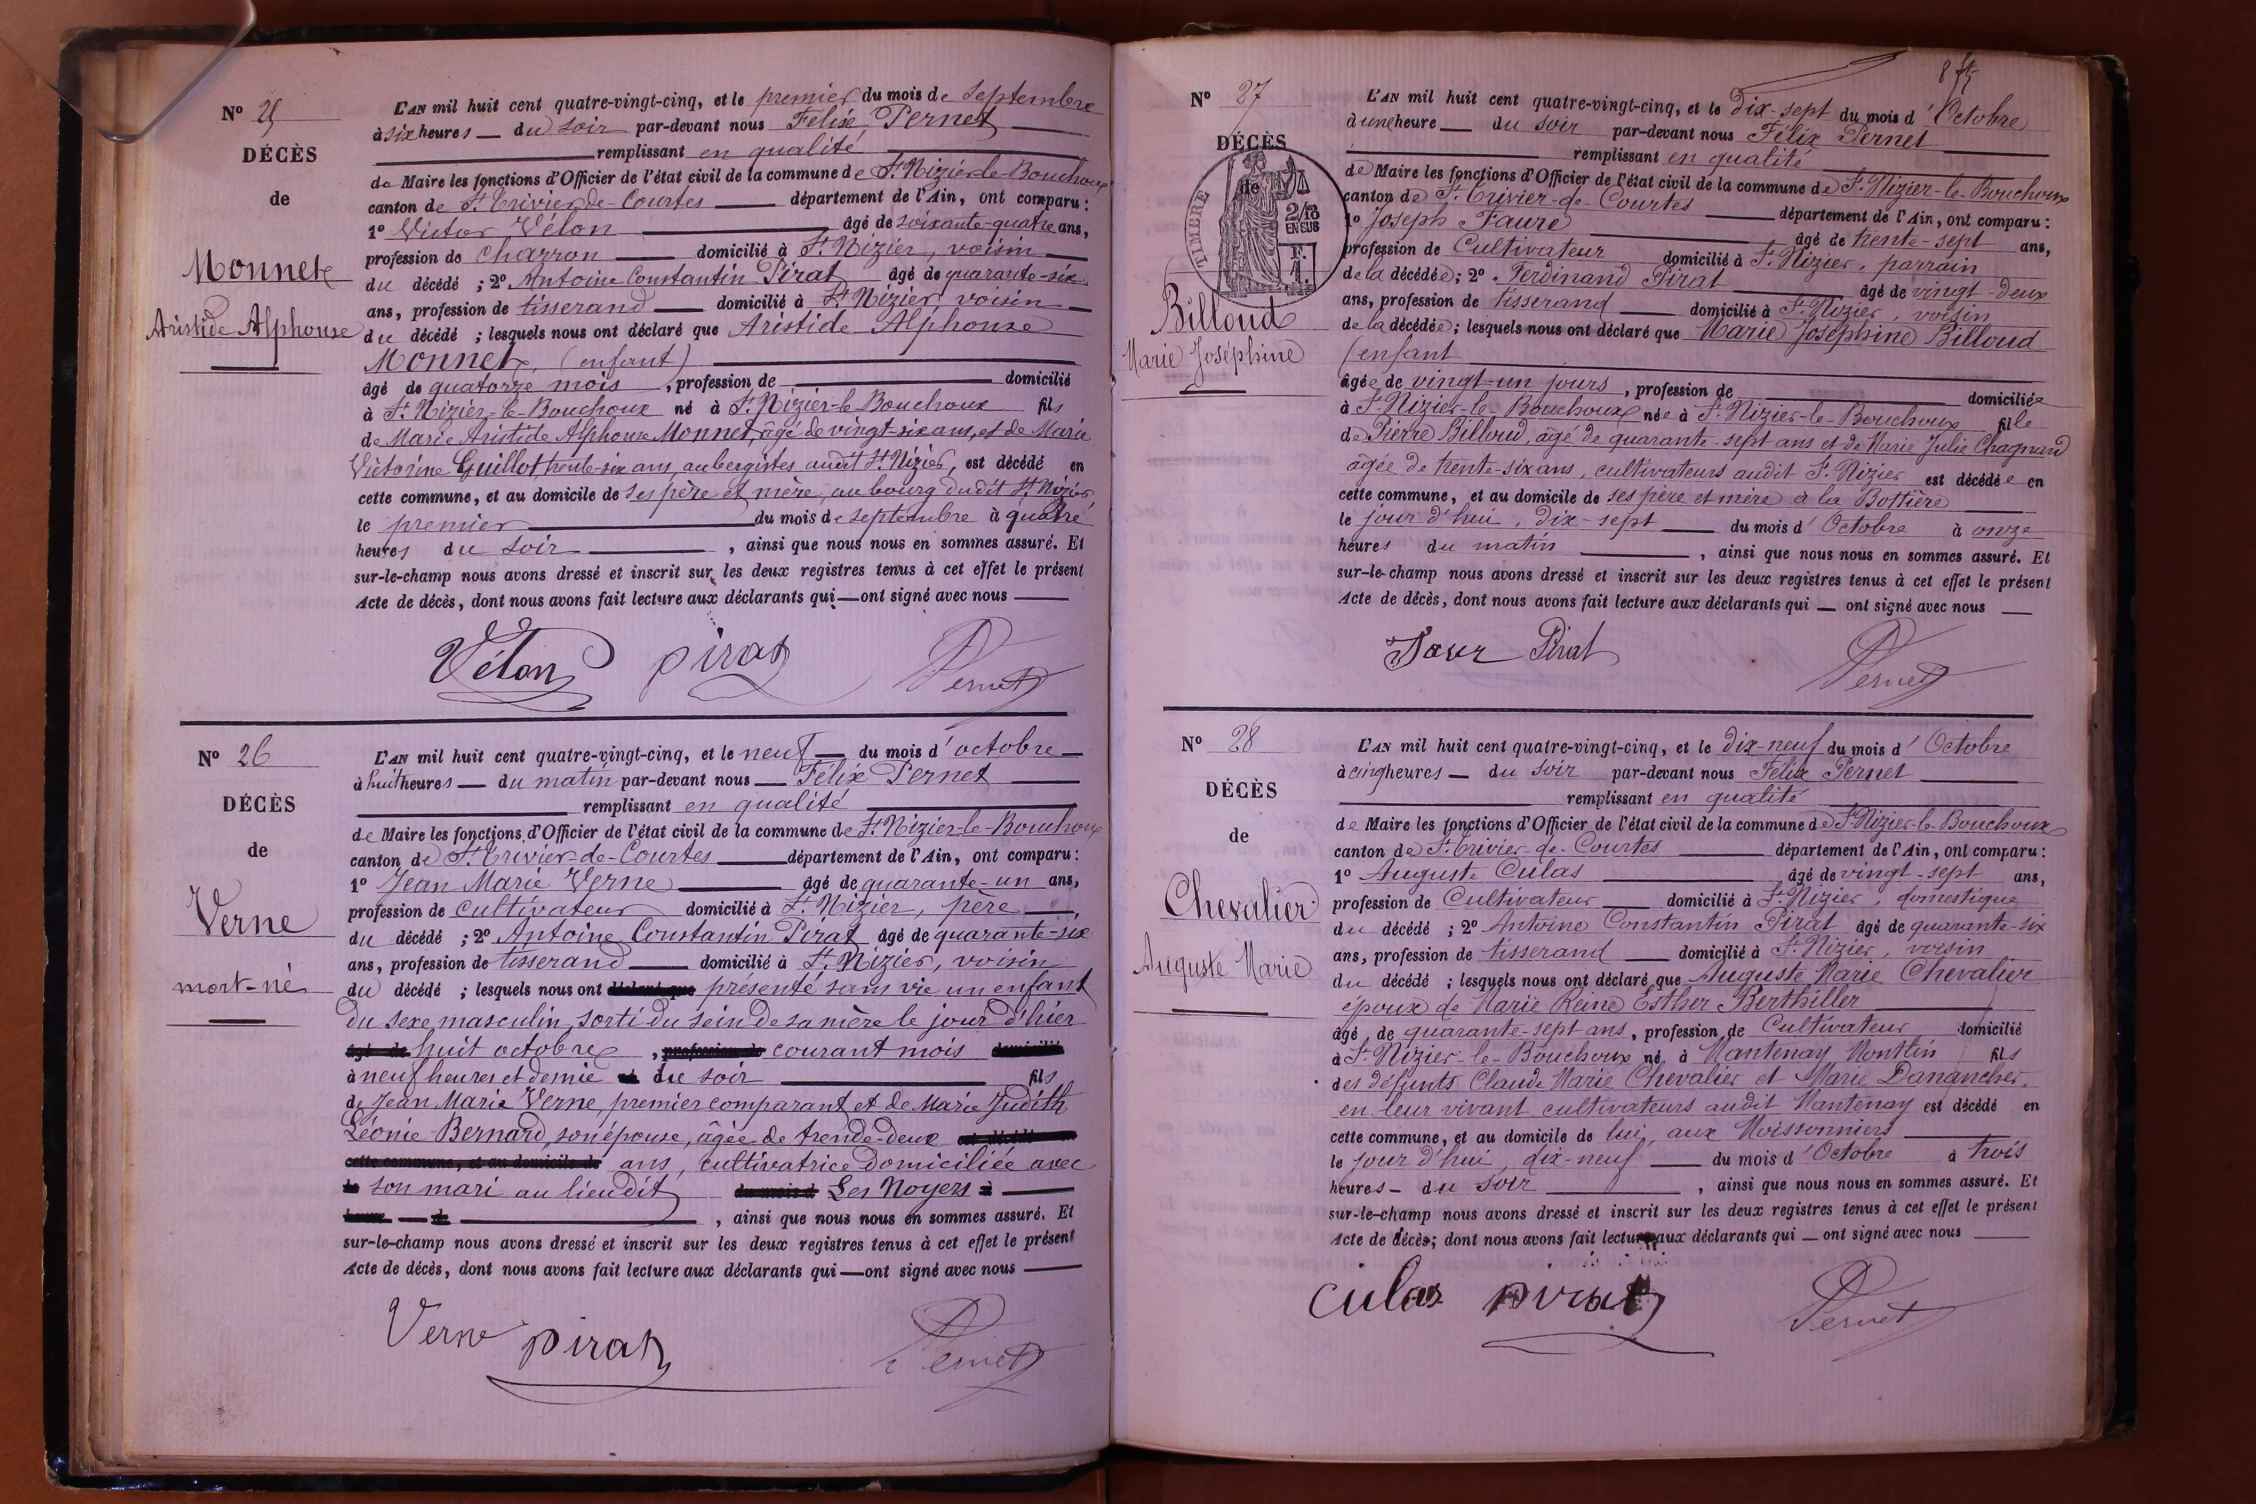 Nº 25
DÉCÈS
de
Monnet
Aristide Alphonse
L'AN mil huit cent quatre-vingt-cinq, et le premier du mois de septembre
à six heures du soir par-devant nous Félix Pernet
remplissant en qualité
de Maire les fonctions d'Officier de l'état civil de la commune de St Nizier-le-Bouchoux
canton de St Trivier-de-Courtes département de l'Ain, ont comparu :
1º Victor Vélon âgé de soixante-quatre ans,
profession de charron domicilié à St Nizier, voisin
du décédé ; 2º Antoine Constantin Pirat âgé de quarante-six
ans, profession de tisserand domicilié à St Nizier, voisin
du décédé ; lesquels nous ont déclaré que Aristide Alphonse
Monnet, (enfant)
âgé de quatorze mois, profession de domicilié
à St Nizier-le-Bouchoux né à St Nizier-le-Bouchoux fils
de Marie Aristide Alphonse Monnet, âgé de vingt-six ans, et de Marie
Victorine Guillot, trente-six ans, aubergistes audit St Nizier, est décédé en
cette commune, et au domicile de ses père et mère, au bourg dudit St Nizier,
le premier du mois de septembre à quatre
heures du soir, ainsi que nous nous en sommes assuré. Et
sur-le-champ nous avons dressé et inscrit sur les deux registres tenus à cet effet le présent
Acte de décès, dont nous avons fait lecture aux déclarants qui ont signé avec nous
Vélon pirat Pernet
Nº 26
DÉCÈS
de
Verne
mort-né
L'AN mil huit cent quatre-vingt-cinq, et le neuf du mois d'octobre
à huit heures du matin par-devant nous Félix Pernet
remplissant en qualité
de Maire les fonctions d'Officier de l'état civil de la commune de St Nizier-le-Bouchoux
canton de St Trivier-de-Courtes département de l'Ain, ont comparu :
1º Jean Marie Verne âgé de quarante-un ans,
profession de cultivateur domicilié à St Nizier, père
du décédé ; 2º Antoine Constantin Pirat âgé de quarante-six
ans, profession de tisserand domicilié à St Nizier, voisin
du décédé ; lesquels nous ont déclaré que présenté sans vie un enfant
du sexe masculin, sorti du sein de sa mère le jour d'hier
âgé de huit octobre, profession de courant mois domicilié
à neuf heures et demie du soir fils
de Jean Marie Verne, premier comparant et de Marie Judith
Léonie Bernard, son épouse, âgée de trende-deux est décédé en
cette commune, et au domicile de ans, cultivatrice domiciliée avec
le son mari au lieu dit du mois d Les Noyers à
heure de, ainsi que nous nous en sommes assuré. Et
sur-le-champ nous avons dressé et inscrit sur les deux registres tenus à cet effet le présent
Acte de décès, dont nous avons fait lecture aux déclarants qui ont signé avec nous
Verne pirat Pernet
Nº 27
DÉCÈS
de
TIMBRE
2/10 EN SUS
F. 1.
Billoud
Marie Joséphine
L'AN mil huit cent quatre-vingt-cinq, et le dix-sept du mois d'Octobre
à une heure du soir par-devant nous Félix Pernet
remplissant en qualité
de Maire les fonctions d'Officier de l'état civil de la commune de St Nizier-le-Bouchoux
canton de St Trivier-de-Courtes département de l'Ain, ont comparu :
1º Joseph Faure âgé de trente-sept ans,
profession de Cultivateur domicilié à St Nizier, parrain
de la décédée ; 2º Ferdinand Pirat âgé de vingt-deux
ans, profession de tisserand domicilié à St Nizier, voisin
de la décédée ; lesquels nous ont déclaré que Marie Joséphine Billoud
(enfant
âgée de vingt-un jours, profession de domiciliée
à St Nizier-le-Bouchoux née à St Nizier-le-Bouchoux fille
de Pierre Billoud, âgé de quarante-sept ans et de Marie Julie Chagnard
âgée de trente-six ans, cultivateurs audit St Nizier est décédée en
cette commune, et au domicile de ses père et mère à la Bottière
le jour d'hui, dix-sept du mois d'Octobre à onze
heures du matin, ainsi que nous nous en sommes assuré. Et
sur-le-champ nous avons dressé et inscrit sur les deux registres tenus à cet effet le présent
Acte de décès, dont nous avons fait lecture aux déclarants qui ont signé avec nous
Pirat Pernet
Nº 28
DÉCÈS
de
Chevalier
Auguste Marie
L'AN mil huit cent quatre-vingt-cinq, et le dix-neuf du mois d'Octobre
à cinq heures du soir par-devant nous Félix Pernet
remplissant en qualité
de Maire les fonctions d'Officier de l'état civil de la commune de St Nizier-le-Bouchoux
canton de St Trivier-de-Courtes département de l'Ain, ont comparu :
1º Auguste Culas âgé de vingt-sept ans,
profession de Cultivateur domicilié à St Nizier, domestique
du décédé ; 2º Antoine Constantin Pirat âgé de quarante-six
ans, profession de tisserand domicilié à St Nizier, voisin
du décédé ; lesquels nous ont déclaré que Auguste Marie Chevalier
époux de Marie Reine Esther Berthiller
âgé de quarante-sept ans, profession de Cultivateur domicilié
à St Nizier-le-Bouchoux né à Mantenay Montlin fils
des défunts Claude Marie Chevalier et Marie Danancher,
en leur vivant cultivateurs audit Mantenay est décédé en
cette commune, et au domicile de lui, aux Moissonniers
le jour d'hui, dix-neuf du mois d'Octobre à trois
heures du soir, ainsi que nous nous en sommes assuré. Et
sur-le-champ nous avons dressé et inscrit sur les deux registres tenus à cet effet le présent
Acte de décès ; dont nous avons fait lecture aux déclarants qui ont signé avec nous
Culas pirat Pernet